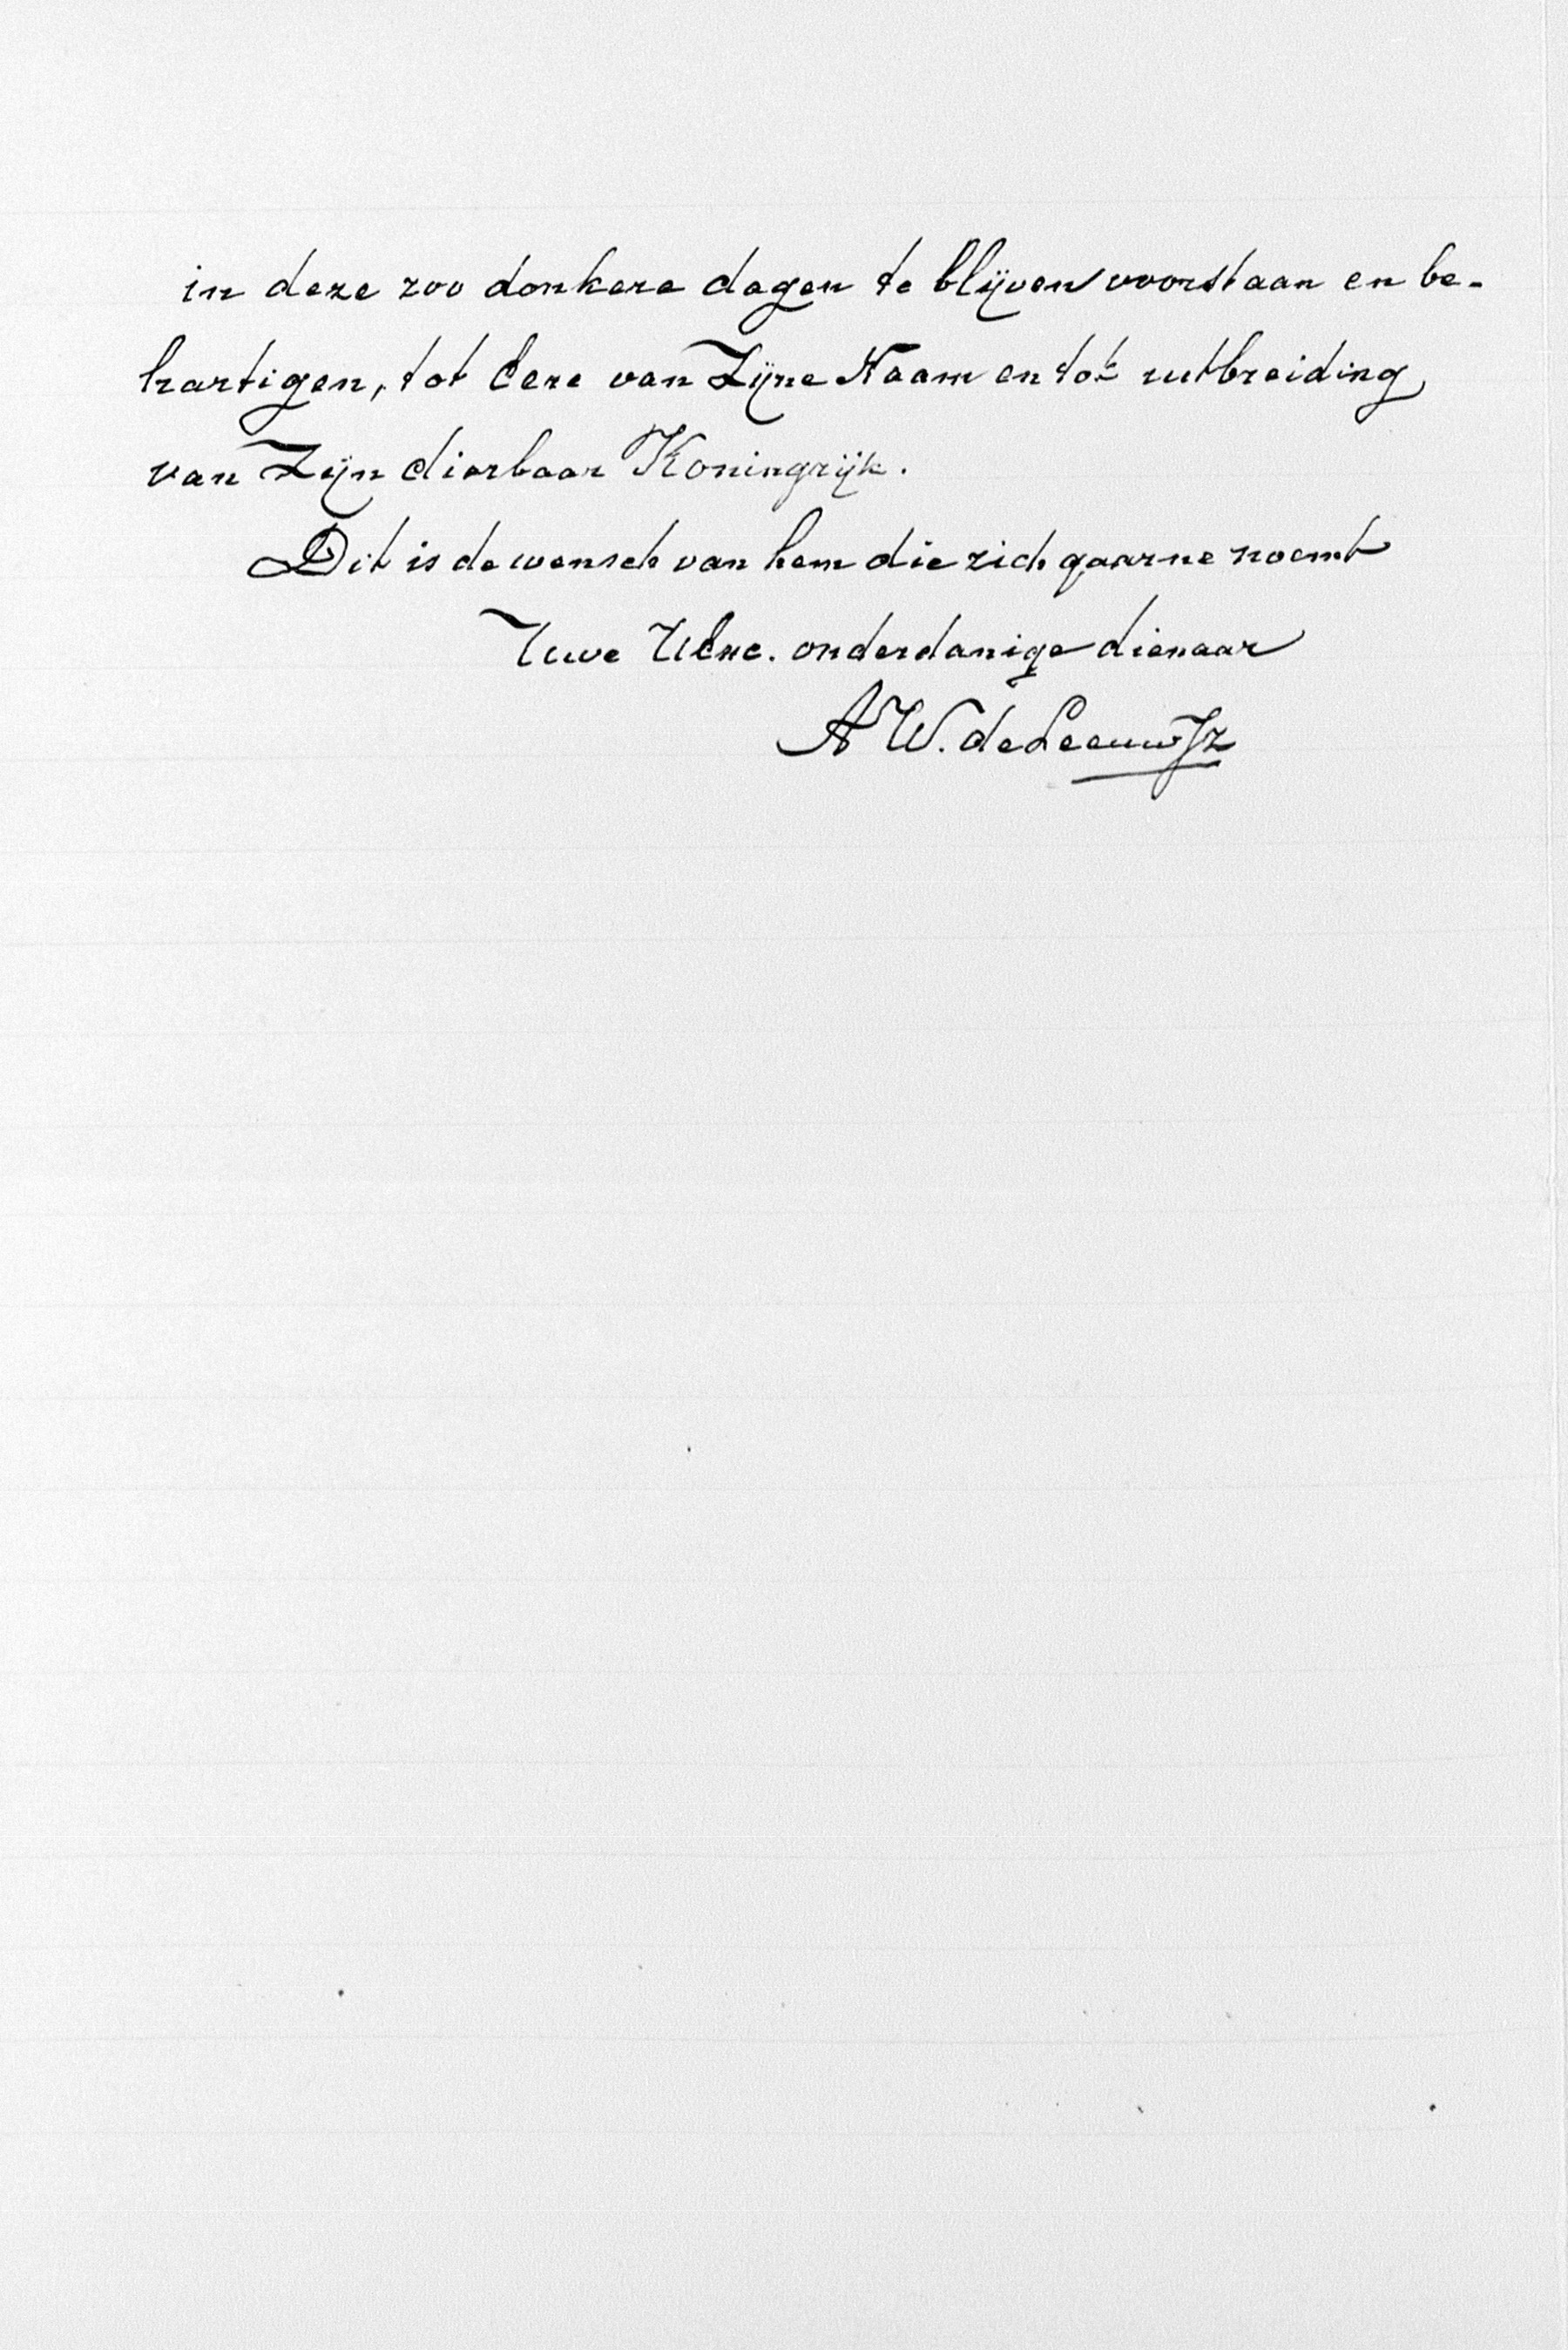 in deze zoo donkere dagen te blijven voorstaan en be-
hartigen, tot Eere van Zijne Naam en tot uitbreiding
van Zijn dierbaar Koningrijk.
Dit is de wensch van hem die zich gaarne noemt
Uwe UExc. onderdanige dienaar
A W. de Leeuw Jz